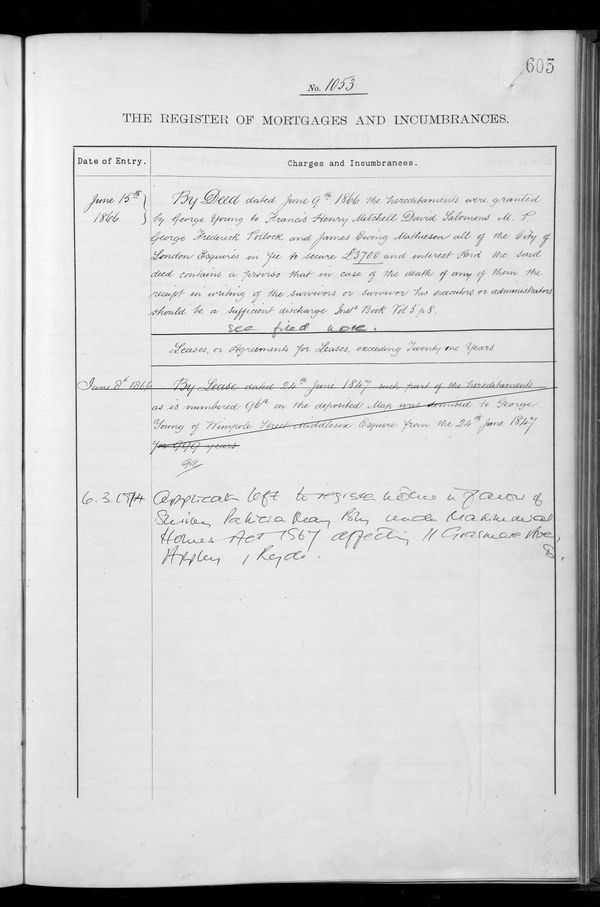 605
No. 1053
THE REGISTER OF MORTGAGES AND INCUMBRANCES.
Date of Entry.
Charges and Incumbrances.
June 15th 1866
By Deed dated June 9th 1866 the hereditaments were granted
by George Young to Francis Henry Mitchell David Salomons M. P.
George Frederick Pollock and James Ewing Mathieson all of the City of
London Esquires in fee to secure £3700 and interest And the said
deed contains a proviso that in case of the death of any of them the
receipt in writing of the survivors or survivor his executors or administrators
should be a sufficient discharge Inst Book Vol 5 p 8.
see filed note.
Leases, or Agreements for Leases, exceeding Twenty one Years
June 8th 1866
By Lease dated 24th June 1847 such part of the hereditaments
as is numbered 96a on the deposited Map was demised to George
Young of Wimpole Street Middlesex Esquire from the 24th June 1847
for 999 years
99
6.3.1974
Application left to register notice in favour of
Patricia May under Matrimonial
Homes Act 1967 affecting 11 Grasmere Ave,
Appley, Ryde.